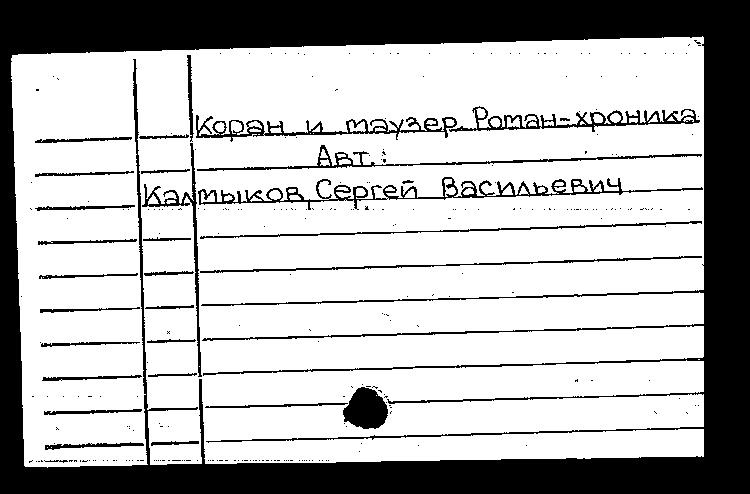 Коран и маузер. Роман-хроника
Авт.:
Калмыков, Сергей Васильевич